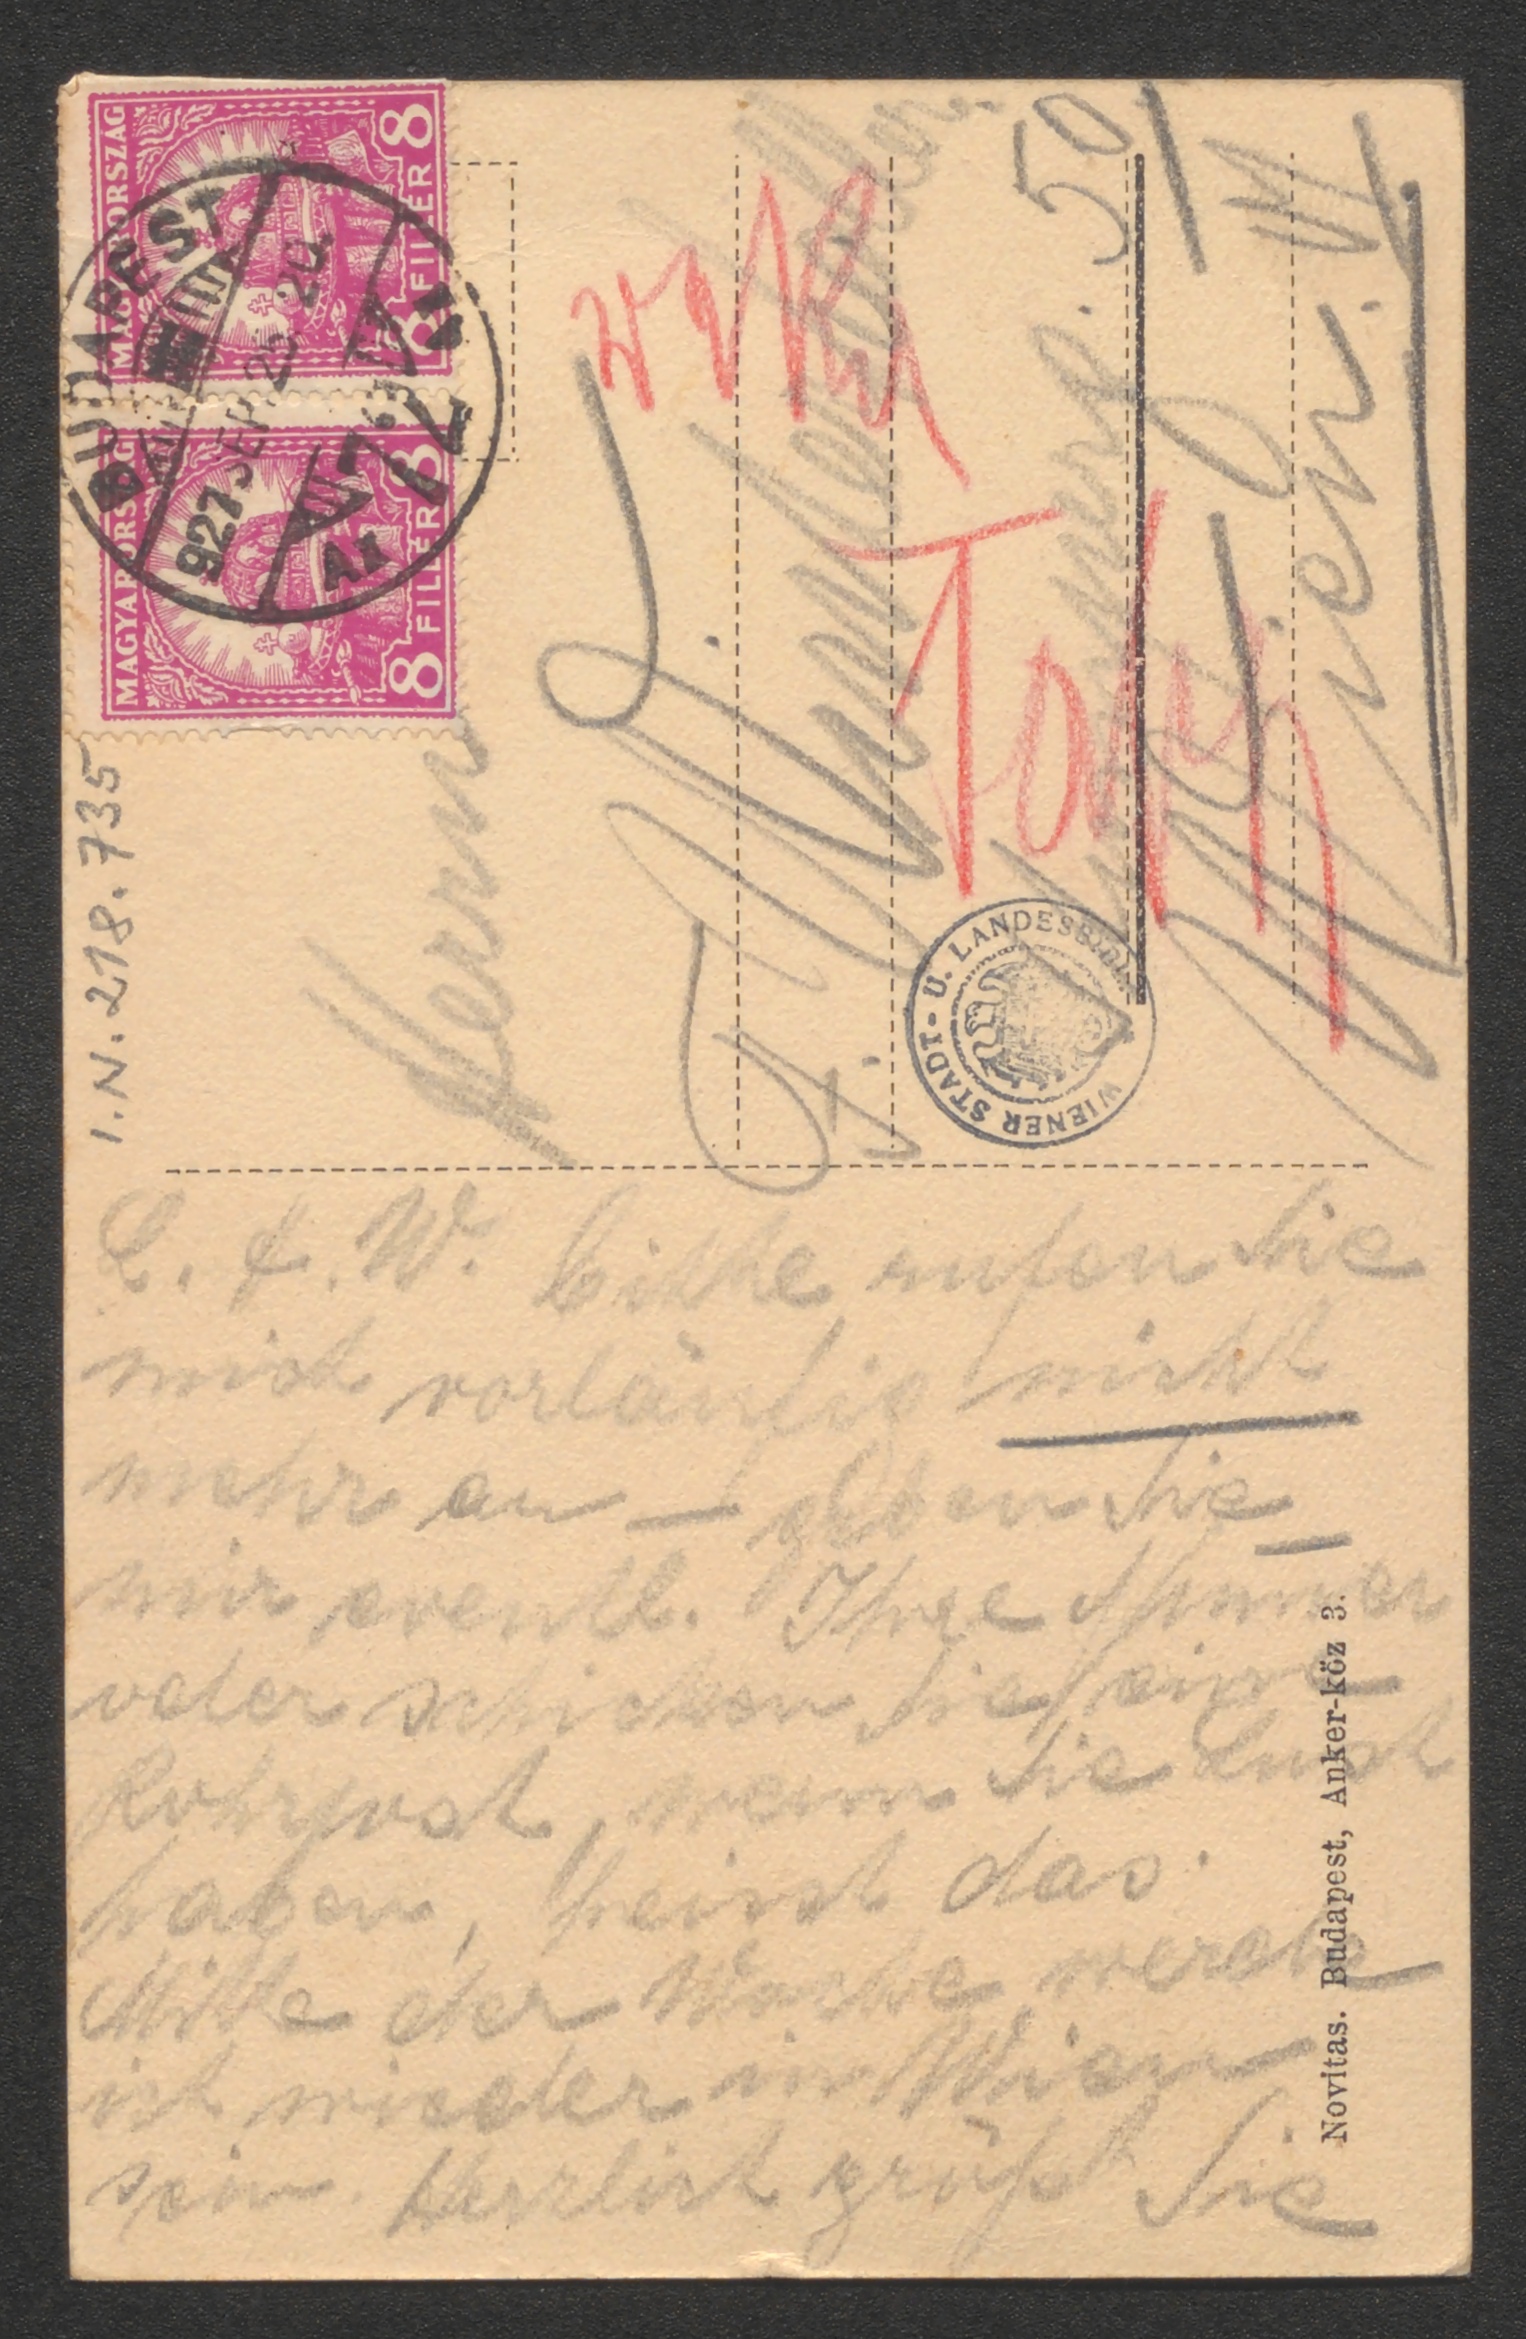 MAGYARORSZÁG
8 FILLÉR 8
MAGYARORSZÁG
8 FILLÉR 8
BUDAPEST 72
927 SEP 25 20
I.N. 218.735
Herrn
F.
50
Wien. VI
WIENER STADT- U. LANDESBIBL.
L. H. W. bitte rufen Sie
mich vorläufig nicht
mehr an — geben Sie
mir eventl. Ihre Nummer
oder schicken Sie eine
Rohrpost, wenn Sie Lust
haben, heisst das.
Mitte der Woche werde
ich wieder in Wien
sein. Herzlich grüßt Sie
Novitas. Budapest, Anker-köz 3.